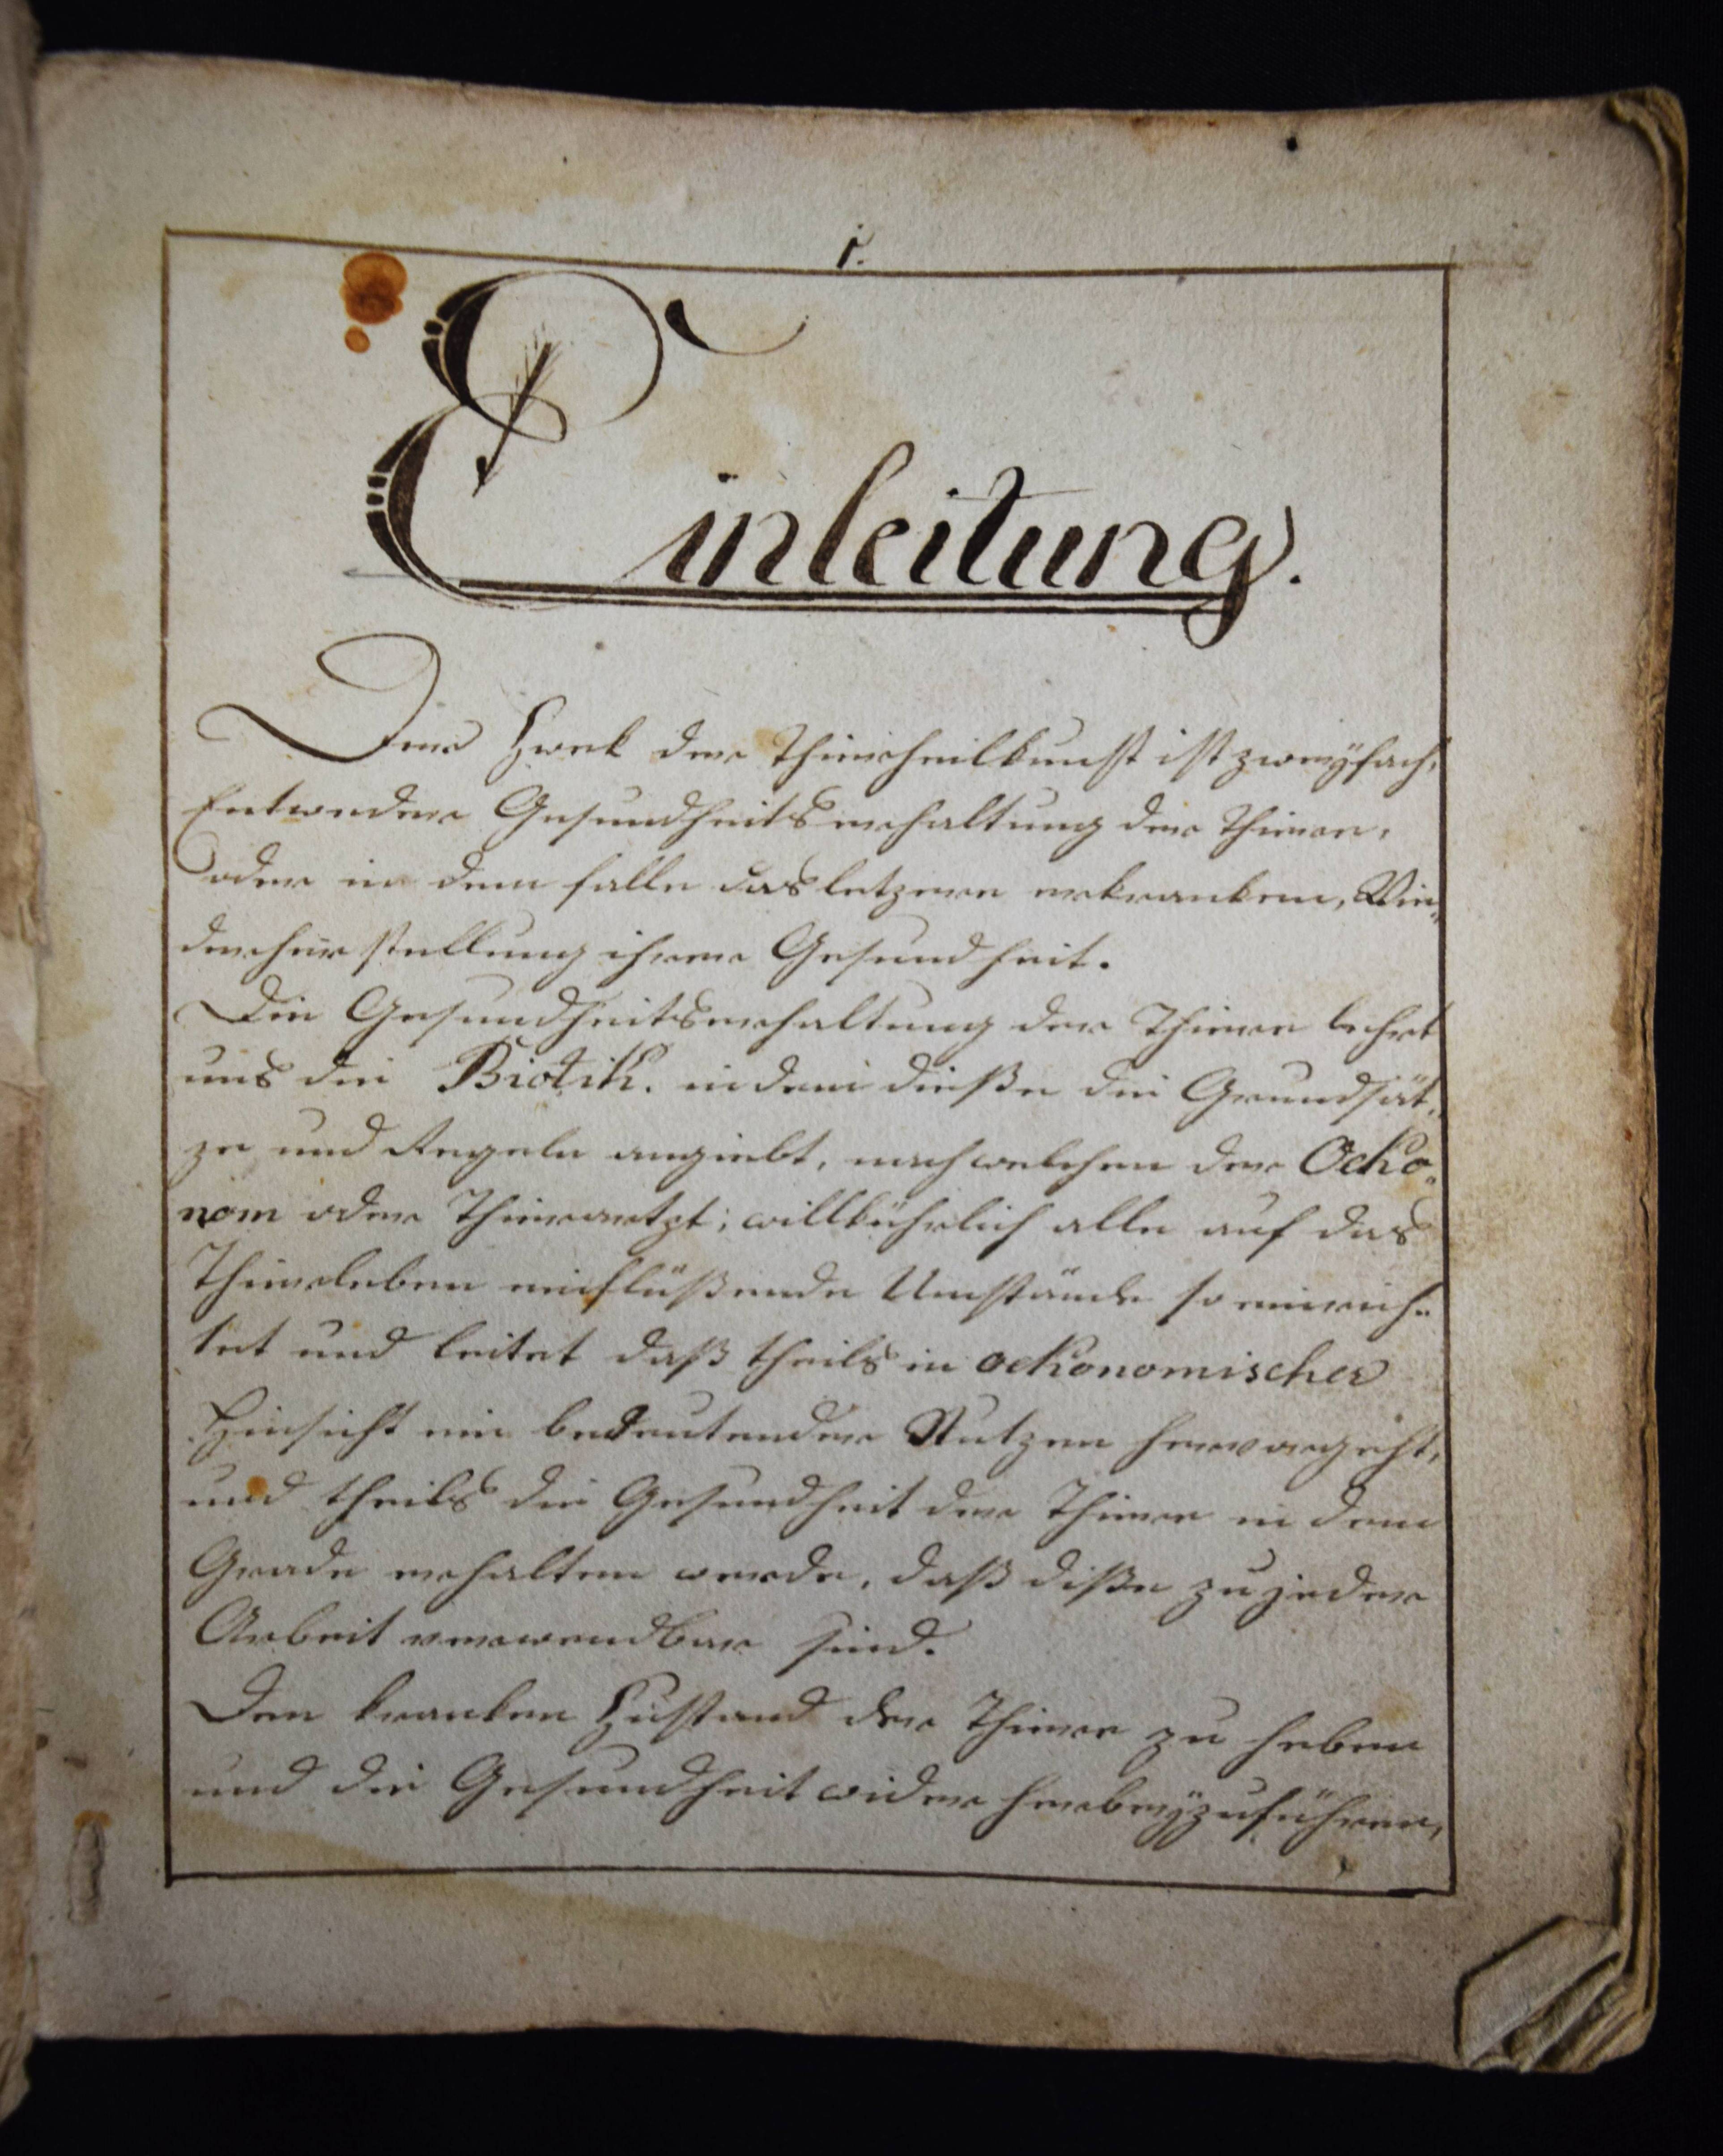 1.
Einleitung.
Der Zwek der Thierheilkunst ist zweyfach,
Entweder Gesundheitserhaltung der Thiere,
oder in dem falle das letzere erkranken, Wie,
derherstellung ihrer Gesundheit.
Die Gesundheitserhaltung der Thiere lehrt
uns die Biotik. indem dieße die Grundsät,
ze und Regeln angiebt, nach welchen der Oeko,
nom oder Thierartzt; willkührlich alle auf das
Thierleben einflüßende Umstände so einrich,,
tet und leitet daß theils in oekonomischer
Hinsicht ein bedeutender Nutzen hervorgeht,
und theils die Gesundheit der Thiere in dem
Grade erhalten werde, daß diße zu jeder
Arbeit verwendbar sind.
Den kranken Zustand der Thiere zu heben
und die Gesundheit wider herbeyzuführen,